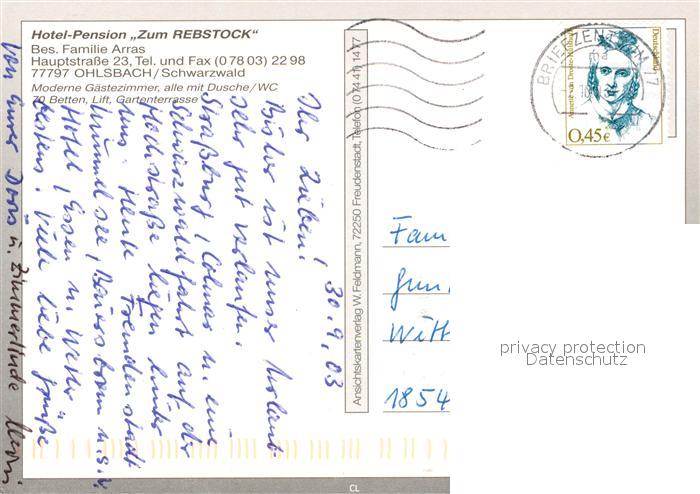 Hotel-Pension „Zum REBSTOCK“
Bes. Familie Arras
Hauptstraße 23, Tel. und Fax (0 78 03) 22 98
77797 OHLSBACH/Schwarzwald
Moderne Gästezimmer, alle mit Dusche/WC
70 Betten, Lift, Gartenterrasse
30.9.03
Ihr Lieben!
Bisher ist unser Urlaub
sehr gut verlaufen.
Straßburg, Colmar u. eine
Schwarzwaldfahrt auf der
Hochstraße liegen hinter
uns. Heute Freudenstadt
Mummelsee, Baiersbronn u.s.w.
Hotel, Essen u. Wetter
bestens. Viele liebe Grüße
von Eurer Doris u.
Ansichtskartenverlag W. Feldmann, 72250 Freudenstadt, Telefon (0 74 41) 14 77
BRIEFZENTRUM 77
Deutschland
Annette von Droste-Hülshoff
0,45€
Fam
Witt
1854
privacy protection
Datenschutz
CL